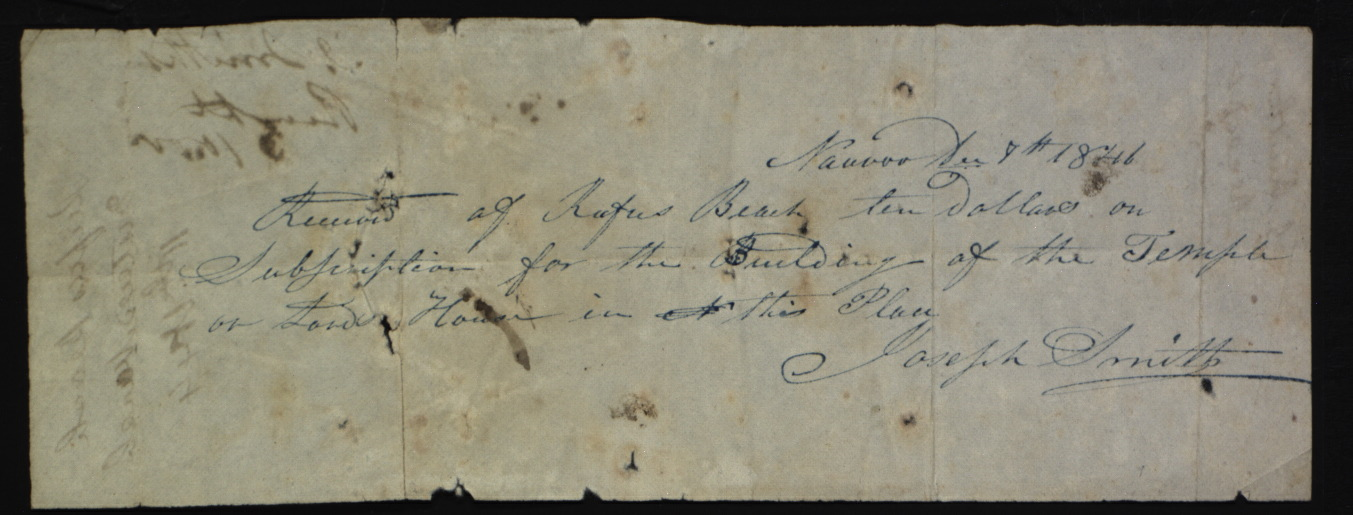 Nauvoo Dec 7th 1841
Receivd of Rufus Beach ten Dollars on
Subscription for the Building of the Temple
or Lords House in this Place
Joseph Smith
J. Smiths